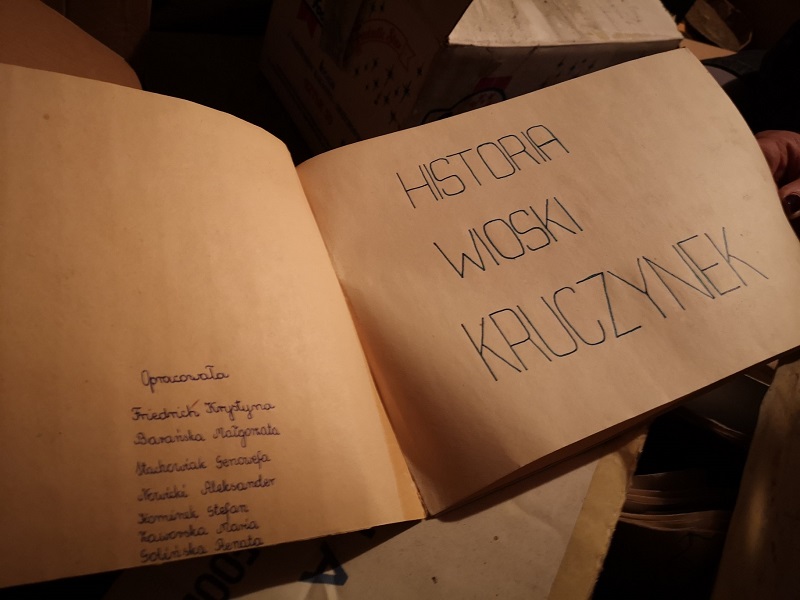 Opracowała
Friedrich Krystyna
Barańska Małgorzata
Stachowiak Genowefa
Nowicki Aleksander
Kominek Stefan
Jaworska Maria
Golińska Renata
HISTORIA
WIOSKI
KRUCZYNEK